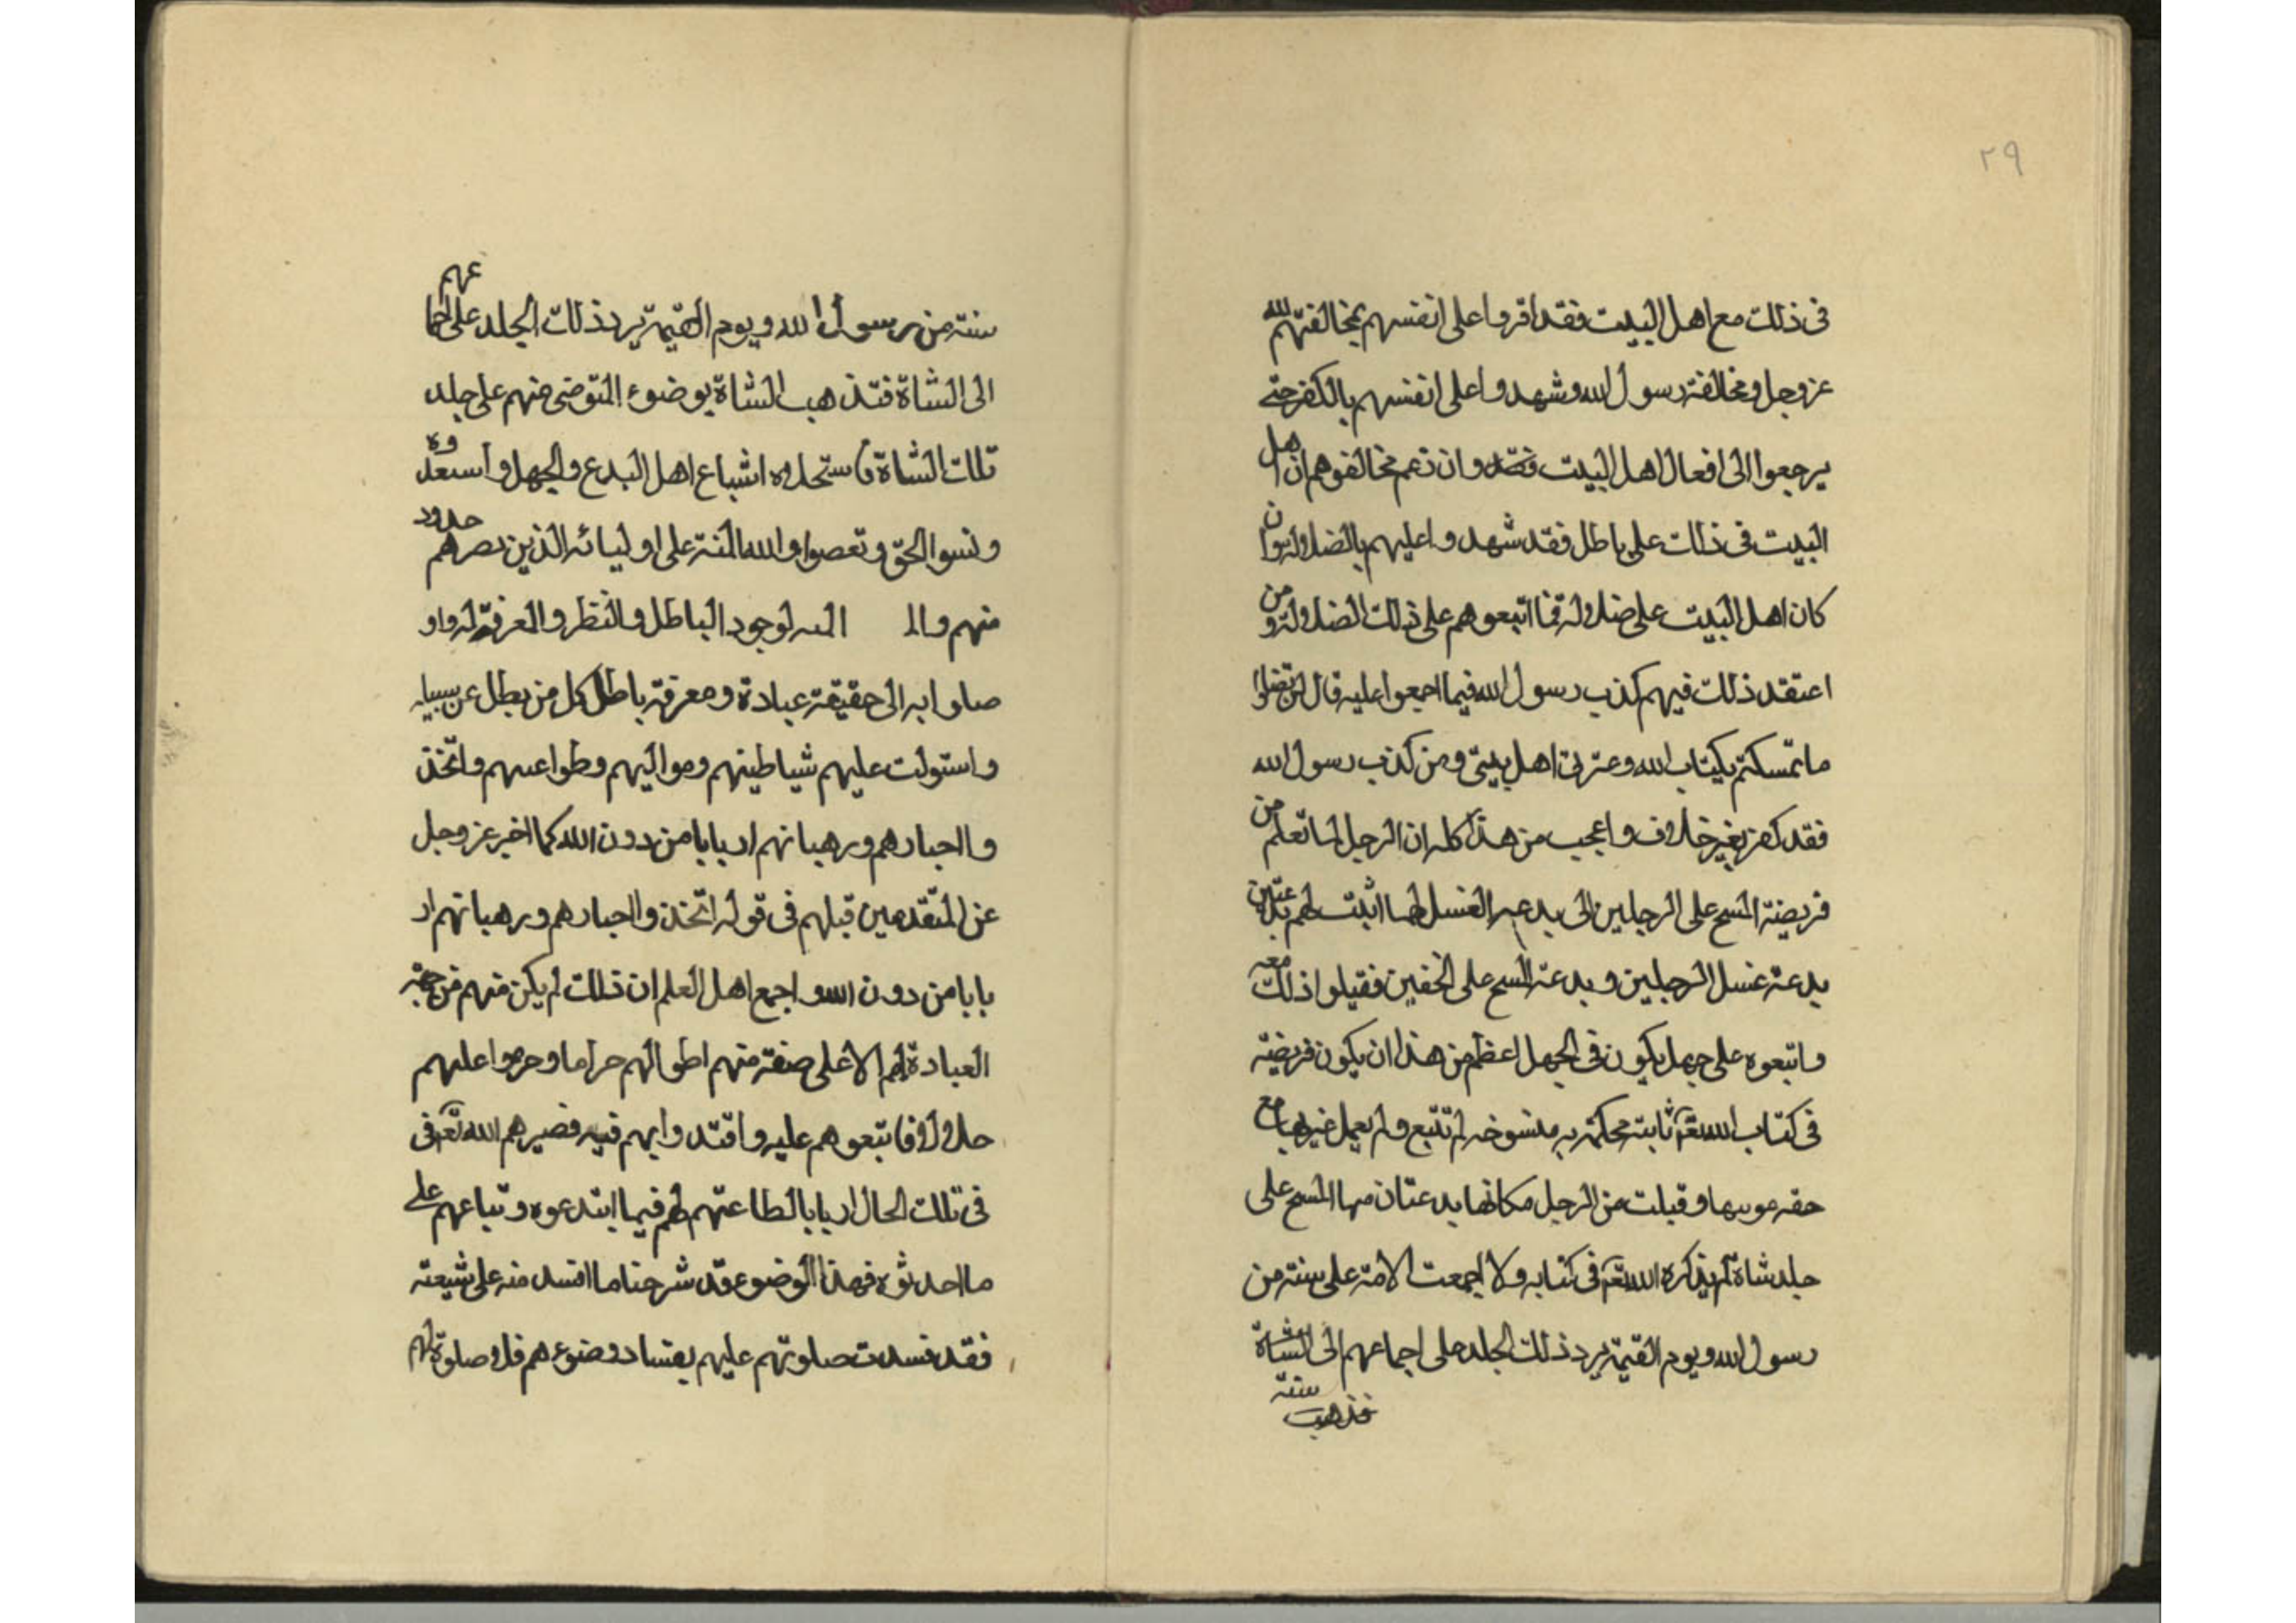 ٢٩
فى ذلك مع اهل البيت فقد اقروا على انفسهم بمخالفتهم لله
عز وجل ومخالفة رسول الله وشهدوا على انفسهم بالكفر حتى
يرجعوا الى افعال اهل البيت وان زعم مخالفوهم ان اهل
البيت فى ذلك على باطل فقد شهدوا عليهم بالضلالة
كان اهل البيت على ضلالة فما اتبعوهم على ذلك الضلالة ومن
اعتقد ذلك فيهم كذب رسول الله فيما اجمعوا عليه قال لن تضلوا
ما تمسكتم بكتاب الله وعترتى اهل بيتى ومن كذب رسول الله
فقد كفر بغير خلاف واعجب من هذا كله ان الرجل لما تعلم من
فريضة المسح على الرجلين الى بدعة الغسل لهما اثبت لهم بدعتين
بدعة غسل الرجلين وبدعة المسح على الخفين فقبلوا ذلك معه
واتبعوه على جهل يكون فى الجهل اعظم من هذا ان يكون فريضة
فى كتاب الله ثابتة محكمة منسوخه لم تتبع ولم يعمل غيرها مع
وقبلت من الرجل مكانها بدعتان منها المسح على
جلد شاة لم يذكره الله فى كتابه ولا اجمعت الامة على سنته من
رسول الله ويوم القيمة يرد ذلك الجلد على اجماعهم الى الشاة
فذهب
سنته من رسول الله ويوم القيمة يرد ذلك الجلد على
الى الشاة فتذهب الشاة بوضوء المتوضى منهم على جلد
تلك الشاة فاستحلوه اشباع اهل البدع والجهل
ونسوا الحق وتعصبوا ولله المنة على اوليائه الذين
منهم لوجود الباطل والنظر والمعرفة
الى حقيقة عبادة ومعرفة باطل كل من بطل عن سبيله
واستولت عليهم شياطينهم ومواليهم وطواعيهم واتخذ
وا احبارهم ورهبانهم اربابا من دون الله كما اخبر عز وجل
عن المتقدمين قبلهم فى قوله اتخذوا احبارهم ورهبانهم ار
بابا من دون الله واجمع اهل العلم ان ذلك لم يكن منهم من جهة
العبادة لهم الا على صفة منهم احلوا لهم حراما وحرموا عليهم
حلالا فاتبعوهم عليه واقتدوا بهم فيه فصيرهم الله فى
فى تلك الحال اربابا لطاعتهم لهم فيما ابتدعوه وتباعهم على
ما احدثوه فهذا الوضوء قد شرحنا ما افسد منه على شيعته
فقد فسدت صلوتهم عليهم بفساد وضوءهم فلا صلوة لهم